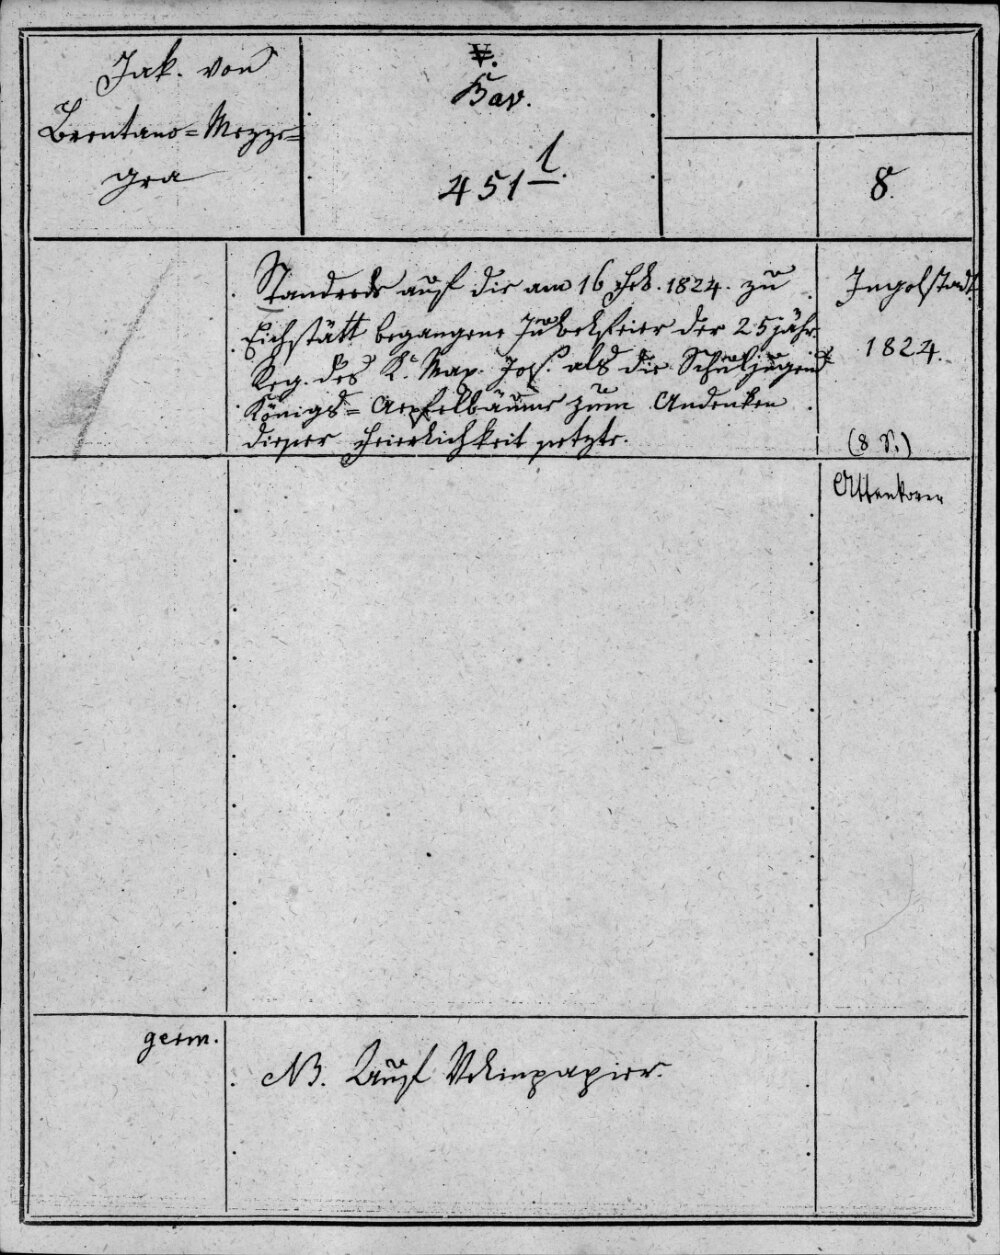 Jak. von
Brentano=Mezze=
gra
V.
Bav.
451 l.
8.
Standrede auf die am 16 Feb. 1824. zu
Eichstätt begangene Jubelfeier der 25jähr.
Reg. des K. Max. Jos. als die Schuljugend
Königs=Aepfelbäume zum Andenken
dieser Feierlichkeit setzte.
Ingolstadt
1824.
(8 S.)
Attenkover
germ.
NB. Auf Velinpapier.